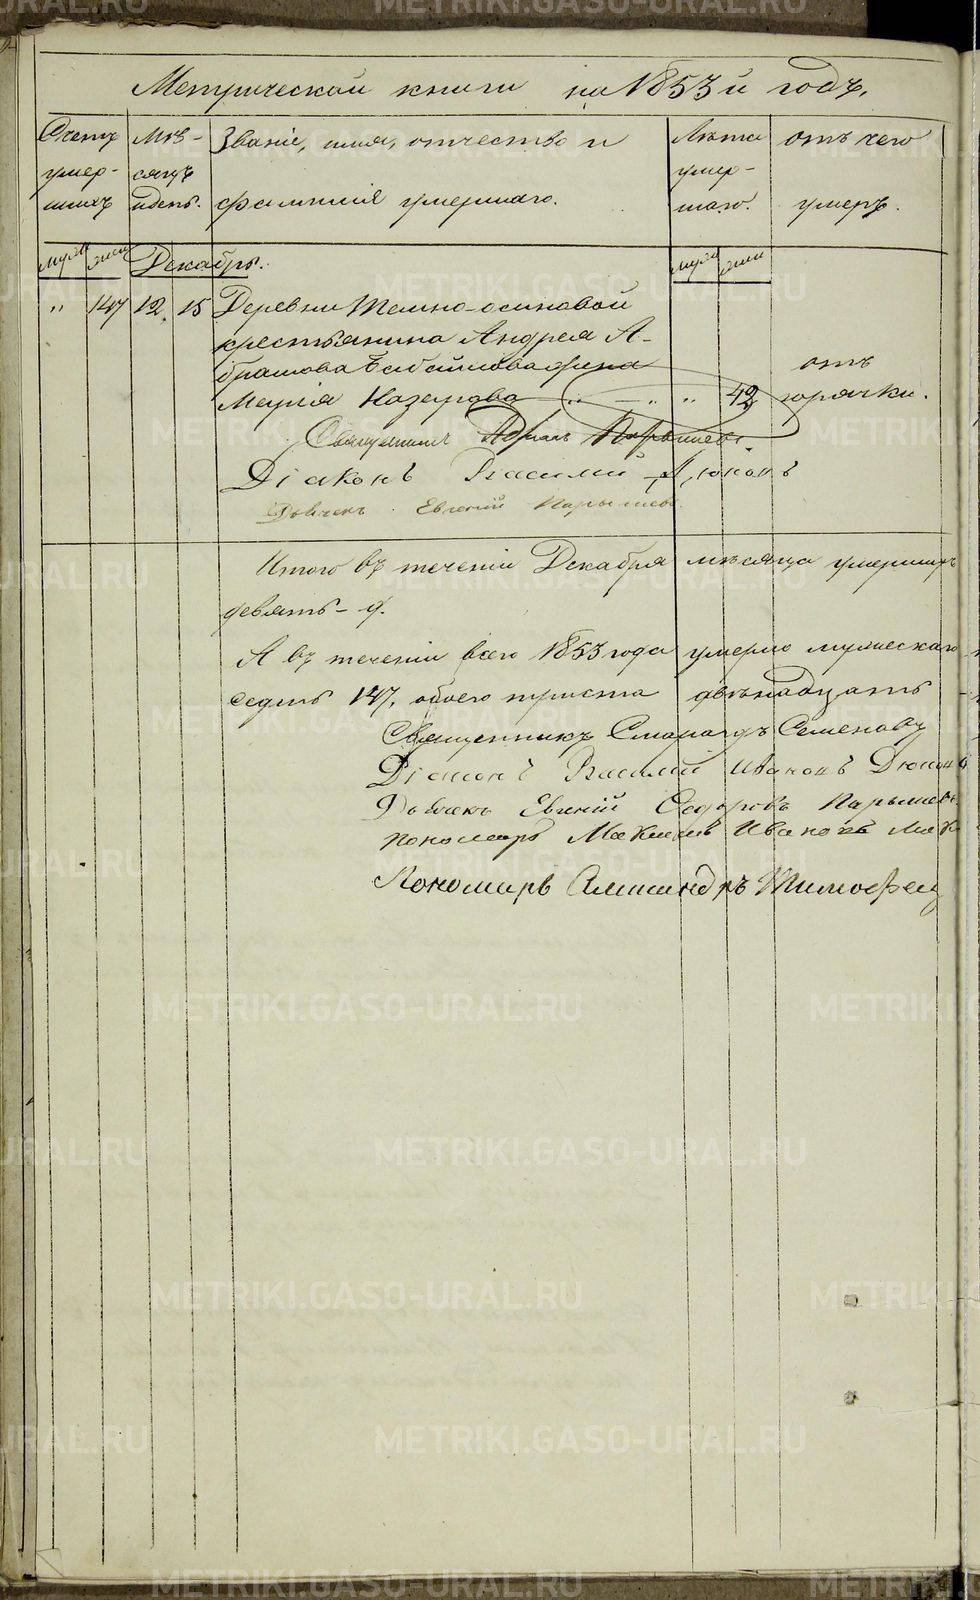 Метрической книги на 1853й годъ.
Счетъ умер- шихъ
Мѣ- сяцъ и день.
Званіе, имя, отчество и фамилія умершаго.
Лѣта умер- шаго.
отъ чего умеръ.
муж. жен. Декабрь. муж. жен.
„ 147 12. 15 Деревни Темно-осиновой
крестьянина Андрея А-
брамова жена отъ
Марія Назарова „ — „ „ 42 горячки.
Священникъ
Діаконъ Василий
Дьячекъ Евгений Парышевъ
Итого въ теченіи Декабря мѣсяца умершихъ
девять - 9.
А въ теченіи всего 1853 года умерло мужескаго
147, обоего триста двѣнадцать
Священникъ Смарагдъ Семеновъ
Діаконъ Василий Ивановъ
Дьячекъ Евгеній Федоровъ Парышевъ
пономарь Максимъ Ивановъ
Пономарь Александръ Тимофеев
METRIKI.GASO-URAL.RU